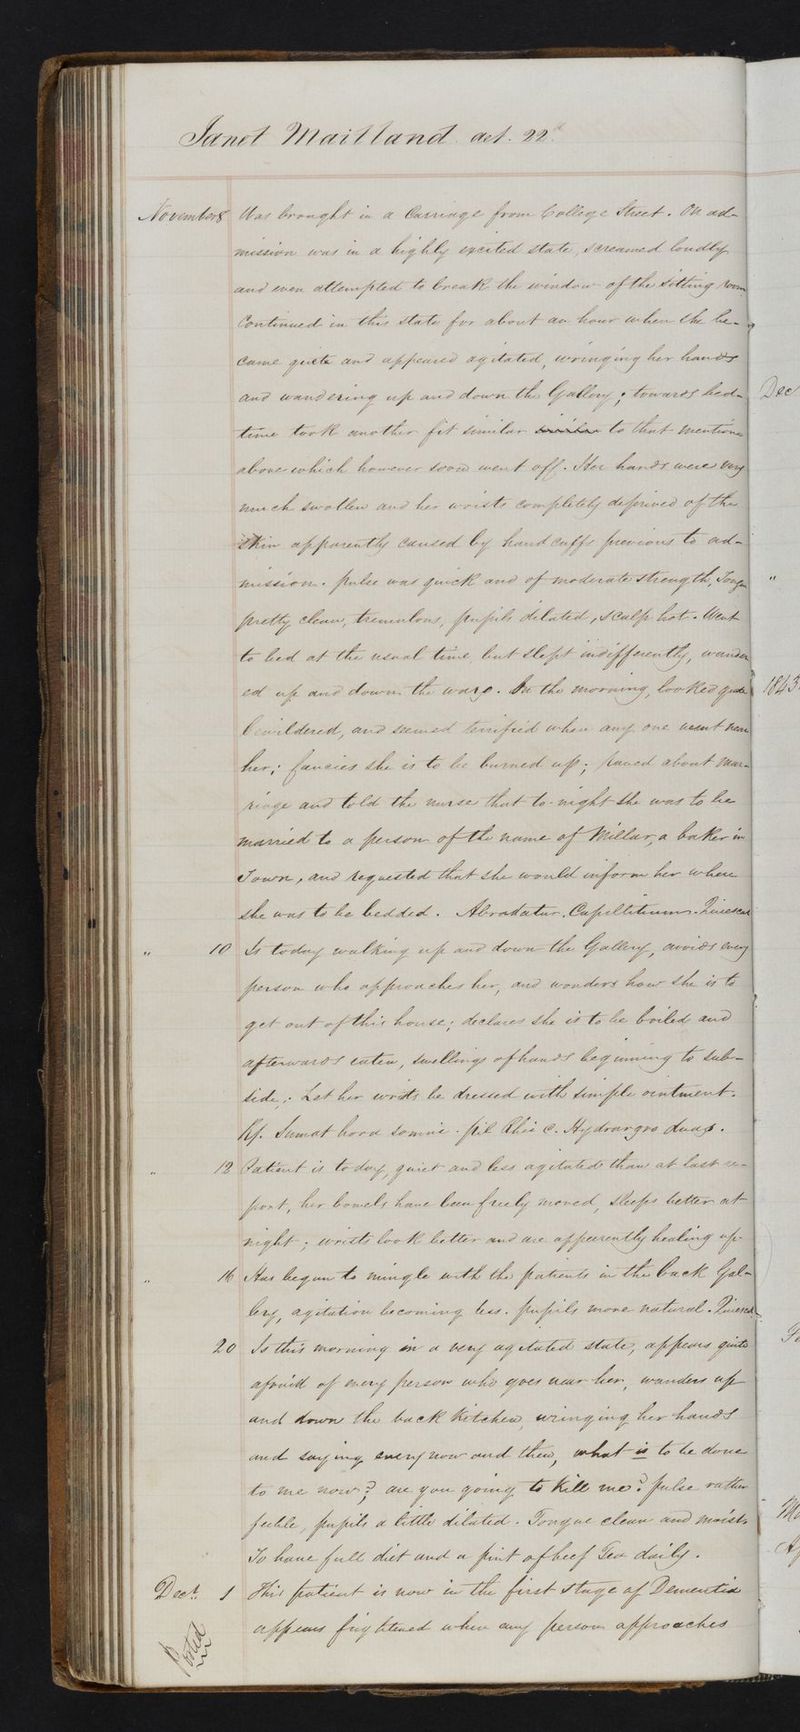 Janet Maitland aet. 22
November 8 Was brought in a Carriage from College Street. On ad-
mission was in a highly excited state, screamed loudly
and even attempted to break the window of the sitting room
Continued in this state for about an hour when she be-
came quite and appeared agitated, wringing her hands
and wandering up and down the Gallery; towards bed-
time took another fit similar similar to that mentione
above which however soon went off. Her hands were very
much swollen and her wrists completely deprived of the
skin apparently caused by hand cuffs previous to ad-
mission. pulse was quick and of moderate strength, Tong
pretty clean, tremulous, pupils dilated, scalp hot. Went
to bed at the usual time but slept indifferently, wander
ed up and down the ward. In the morning, looked quite
bewildered, and seemed terrified when any one went near
her; fancies she is to be burned up; raved about mar-
riage and told the nurse that to-night she was to be
married to a person of the name of Millar, a baker in
Town, and requested that she would inform her where
she was to be bedded. Abradatur Capillitium.
" 10 Is today walking up and down the Gallery, avoids every
person who approaches her, and wonders how she is to
get out of this house; declares she is to be boiled and
afterwards eaten, swellings of hands beginning to sub-
side. Let her wrists be dressed with simple ointment.
Rp. Sumat hora somni pil Rhei c. Hydrargro duas.
" 12 Patient is to day, quiet and less agitated than at last re-
port, her bowels have been freely moved, sleeps better at
night; wrists look better and are apparently healing up
" 16 Has begun to mingle with the patients in the back Gal-
lery, agitation becoming less. pupils more natural.
20 Is this morning in a very agitated state, appears quite
afraid of every person who goes near her, wanders up
and down the back kitchen, wringing her hands
and saying every now and then, what is to be done
to me now? are you going to kill me? pulse rather
feeble, pupils a little dilated. Tongue clean and moist
To have full diet and a pint of beef Tea daily.
Decr. 1 This patient is now in the first stage of Dementia
appears frightened when any person approaches
Posted
Dec
"
1843